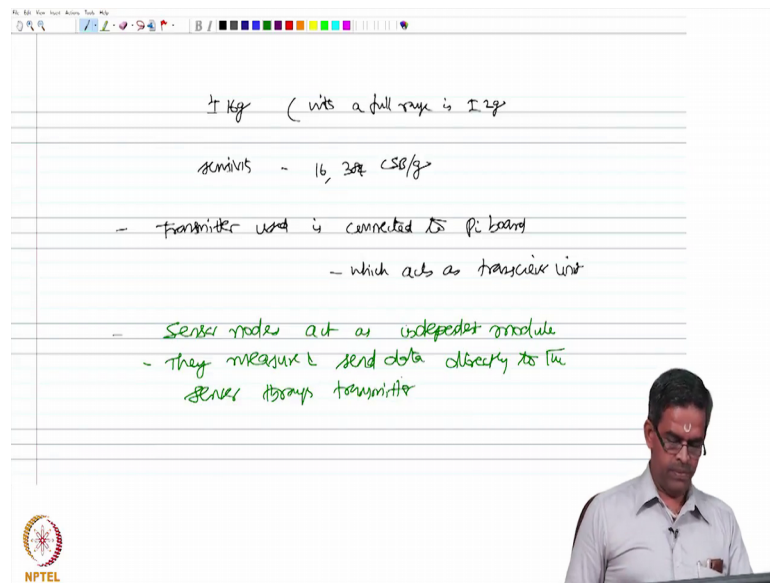 File Edit View Insert Actions Tools Help
B I
± 16g (with a full range is ± 2g
sensivit - 16, 384 LSB/g
- transmitter used is connected to Pi board
- which acts as transciever unit
- Sensor nodes act as independent module
- They measure & send data directly to the
server through transmitter
NPTEL